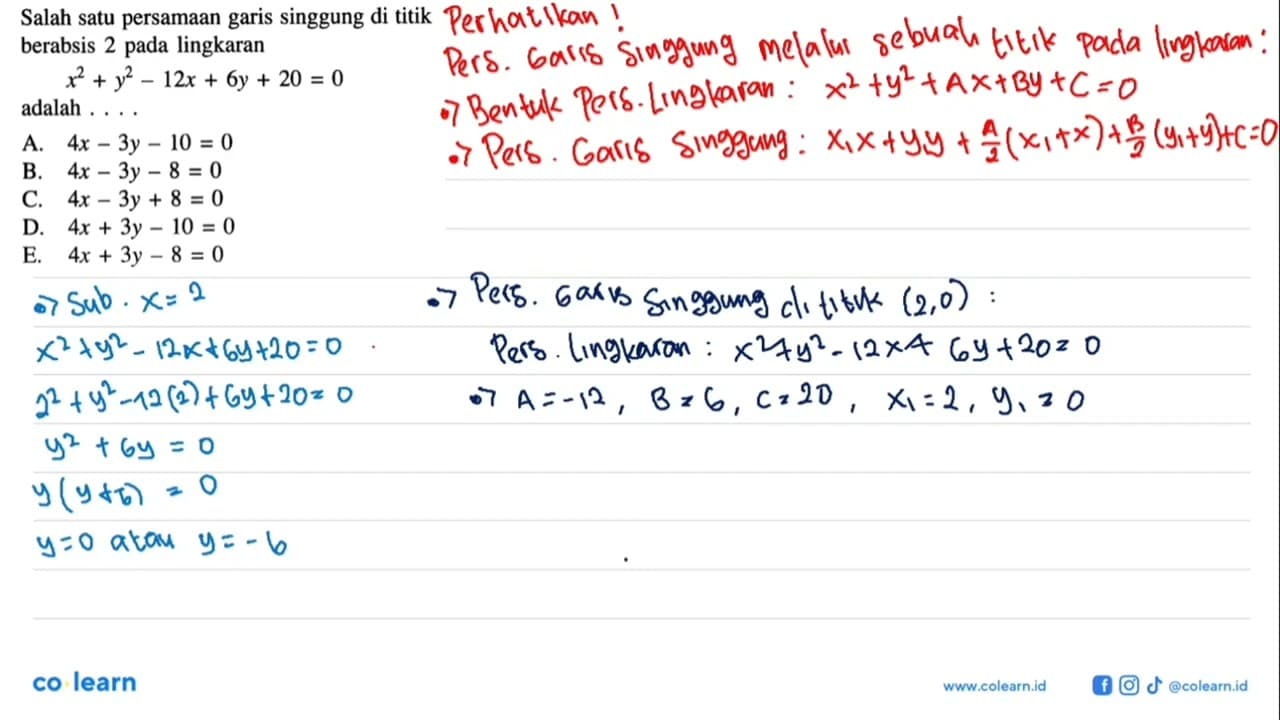 Salah satu persamaan garis singgung di titik
berabsis 2 pada lingkaran
x² + y² − 12x + 6y + 20 = 0
adalah . . . .
A. 4x − 3y − 10 = 0
B. 4x − 3y − 8 = 0
C. 4x − 3y + 8 = 0
D. 4x + 3y − 10 = 0
E. 4x + 3y − 8 = 0
Perhatikan !
Pers. Garis Singgung melalui sebuah titik pada lingkaran :
•→ Bentuk Pers. Lingkaran : x² + y² + Ax + By + C = 0
•→ Pers. Garis Singgung : x₁x + y₁y + A/2 (x₁+x) + B/2 (y₁+y)+C=0
•→ Sub. x = 2
x² + y² − 12x + 6y + 20 = 0
2² + y² − 12(2) + 6y + 20 = 0
y² + 6y = 0
y(y+6) = 0
y=0 atau y = −6
•→ Pers. Garis Singgung di titik (2,0) :
Pers. lingkaran : x² + y² − 12x + 6y + 20 = 0
•→ A = −12, B = 6, C = 20, x₁ = 2, y₁ = 0
co learn
www.colearn.id
@colearn.id